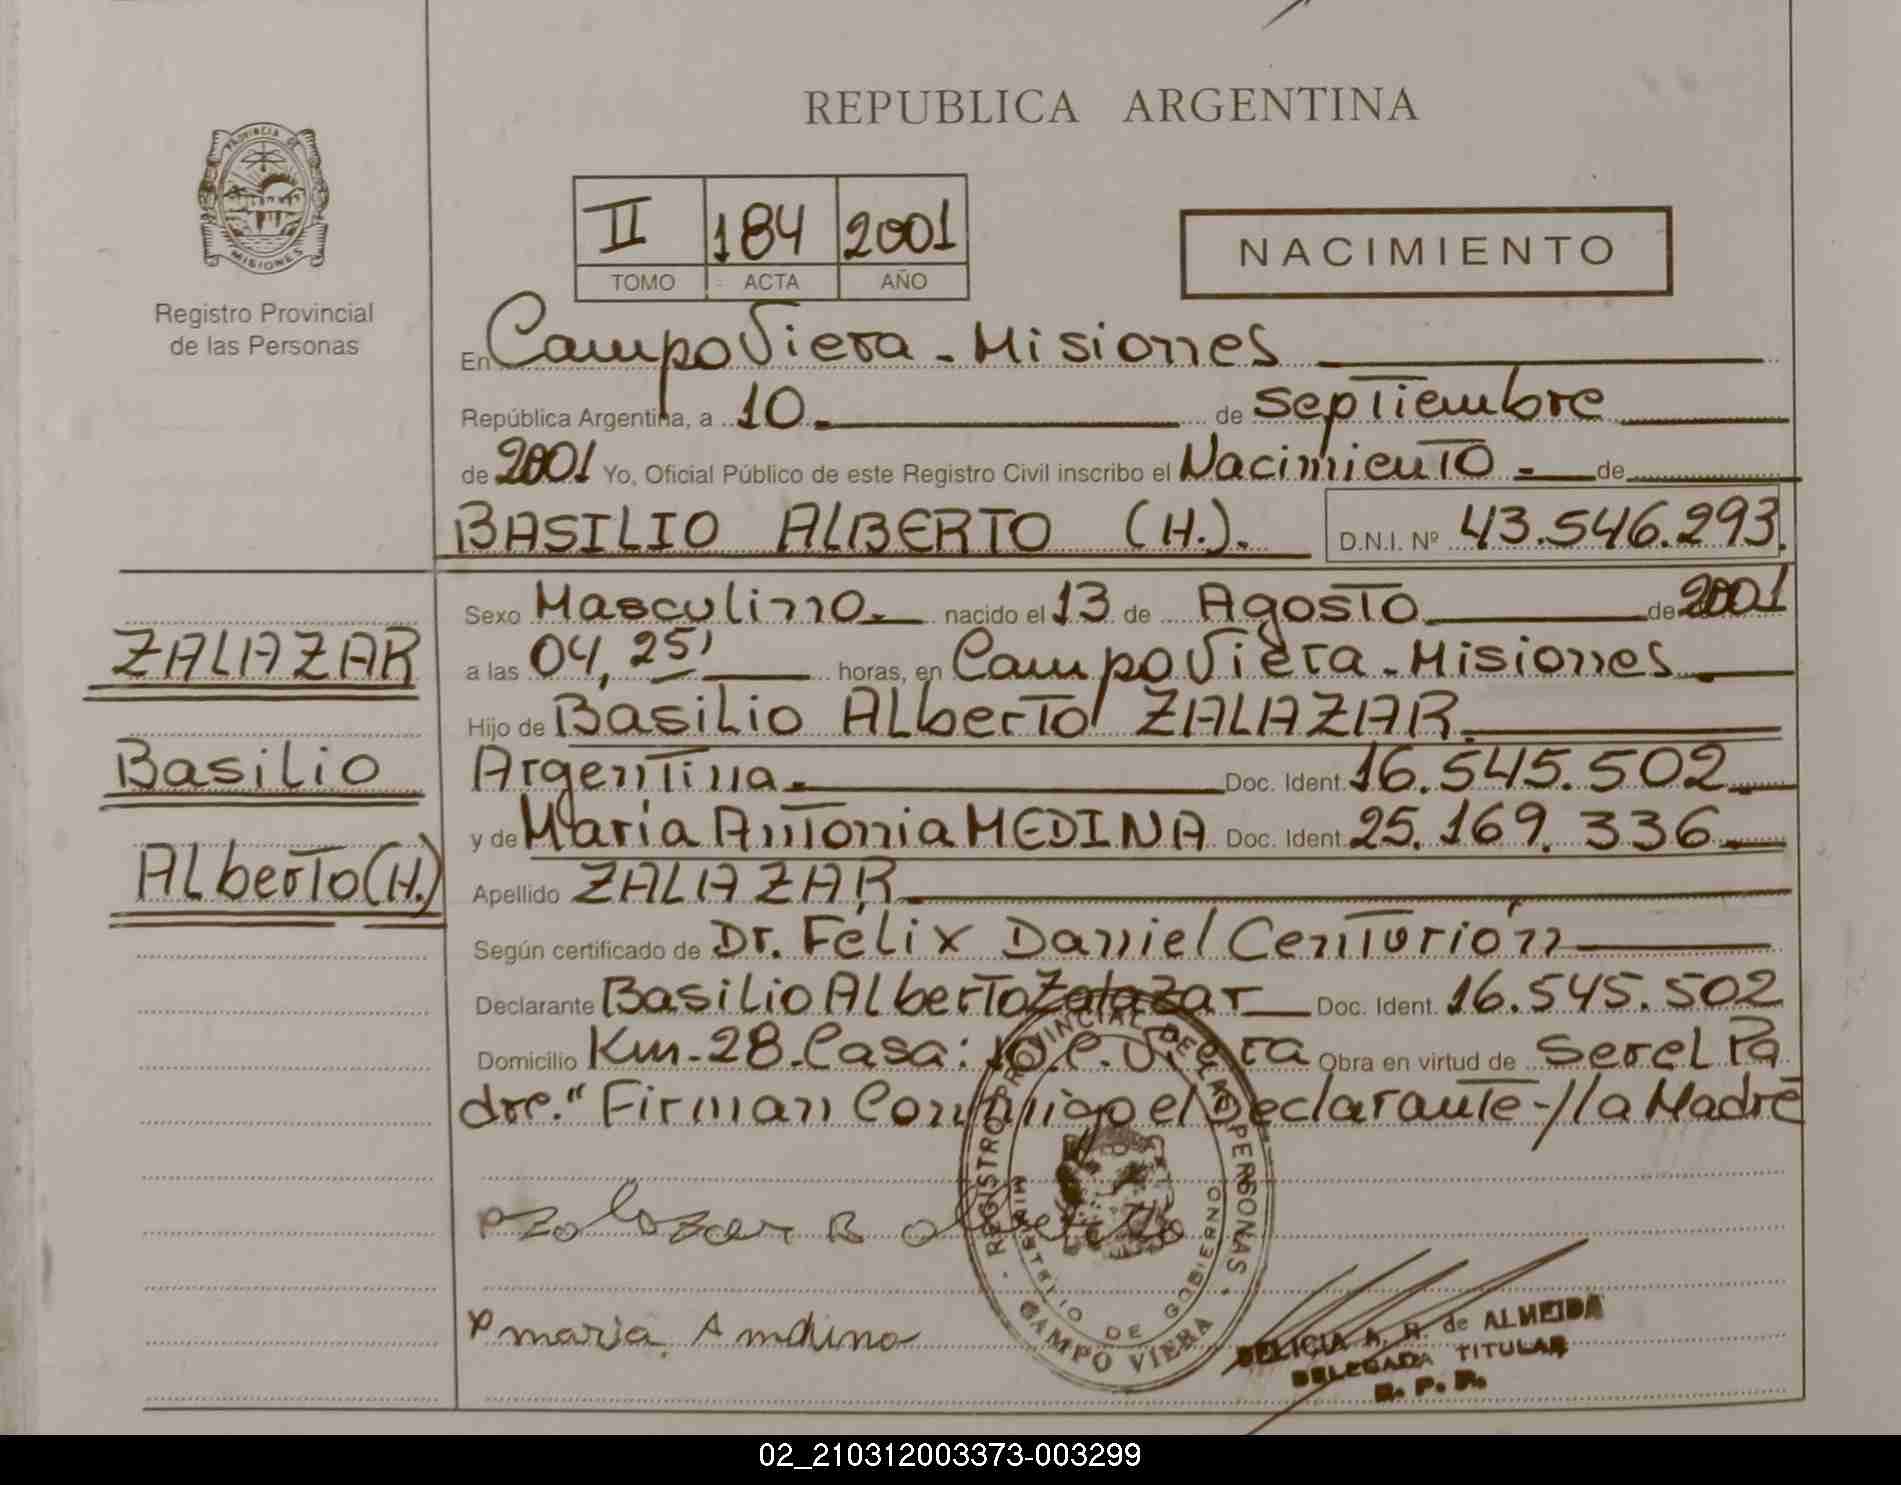 REPUBLICA ARGENTINA
PROVINCIA DE
MISIONES
Registro Provincial
de las Personas
II 184 2001
TOMO ACTA AÑO
NACIMIENTO
En Campo Viera - Misiones
República Argentina, a 10 de septiembre
de 2001 Yo, Oficial Público de este Registro Civil inscribo el Nacimiento - de
BASILIO ALBERTO (H.). D.N.I. Nº 43.546.293.
ZALAZAR
Basilio
Alberto (H.)
Sexo Masculino. nacido el 13 de Agosto de 2001
a las 04,25' horas, en Campo Viera - Misiones
Hijo de Basilio Alberto ZALAZAR.
Argentina. Doc. Ident. 16.545.502
y de María Antonia MEDINA Doc. Ident. 25.169.336
Apellido ZALAZAR
Según certificado de Dr. Félix Daniel Centurión
Declarante Basilio Alberto Zalazar Doc. Ident. 16.545.502
Domicilio Km-28-Casa: 10 C. Viera Obra en virtud de Ser el Pa
dre." Firman Conmigo el Declarante-/la Madre
REGISTRO PROVINCIAL DE LAS PERSONAS
MINISTERIO DE GOBIERNO
CAMPO VIERA
zalazar B alberto
maria A mdina
DELICIA A. R. de ALMEIDA
DELEGADA TITULAR
R. P. P.
02_210312003373-003299